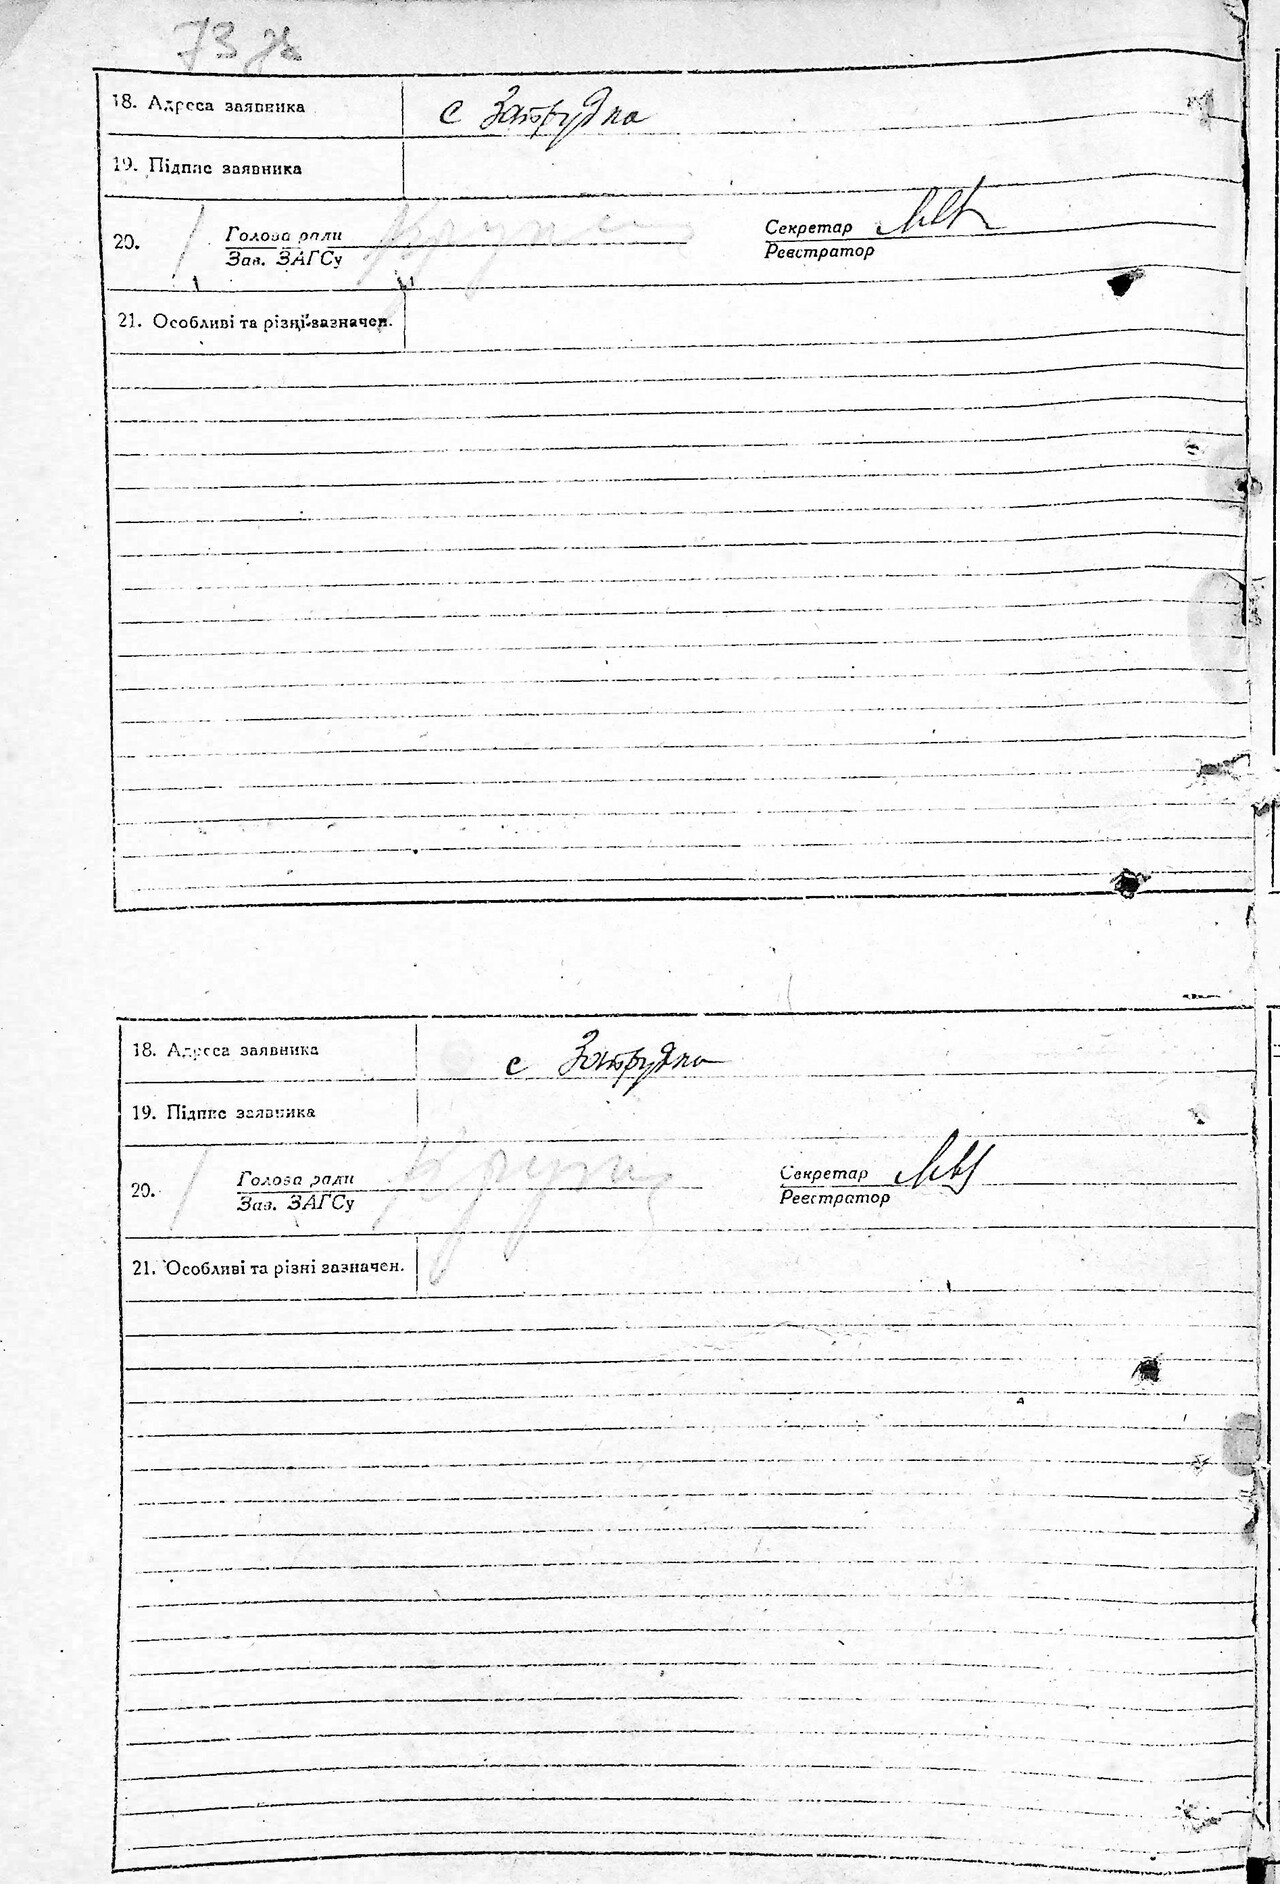 73 зв
18. Адреса заявника
с Затрудна
19. Підпис заявника
20. Голова ради
Зав. ЗАГСу
Секретар
Реєстратор
21. Особливі та різні зазначен.
18. Адреса заявника
с Затрудна
19. Підпис заявника
20. Голова ради
Зав. ЗАГСу
Секретар
Реєстратор
21. Особливі та різні зазначен.